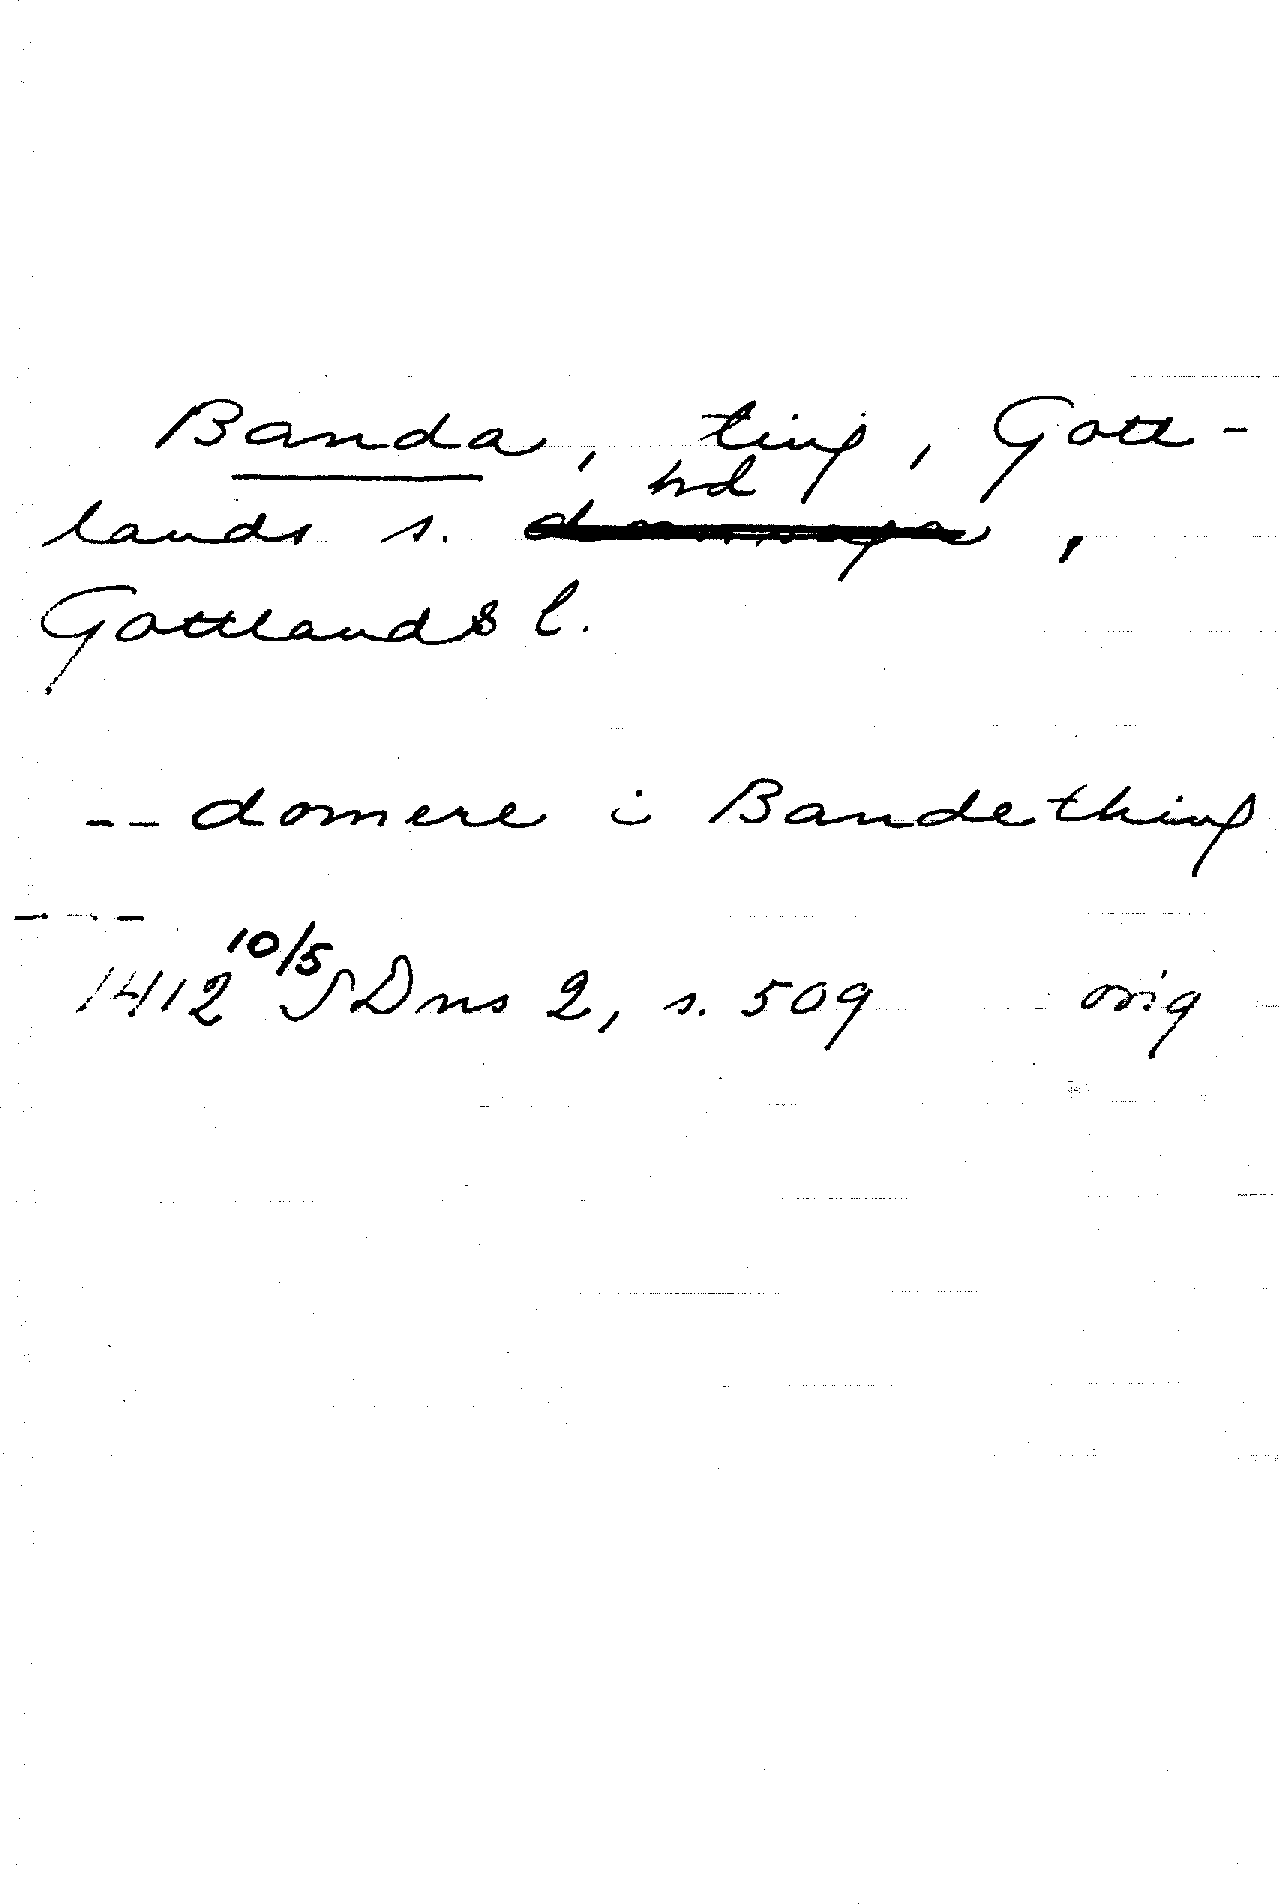 Banda, ting, Gott-
hd
lands s. domsaga,
Gottlands l.
-- domere i Bandething
-- --
1412 10/5 SDns 2, s. 509 orig